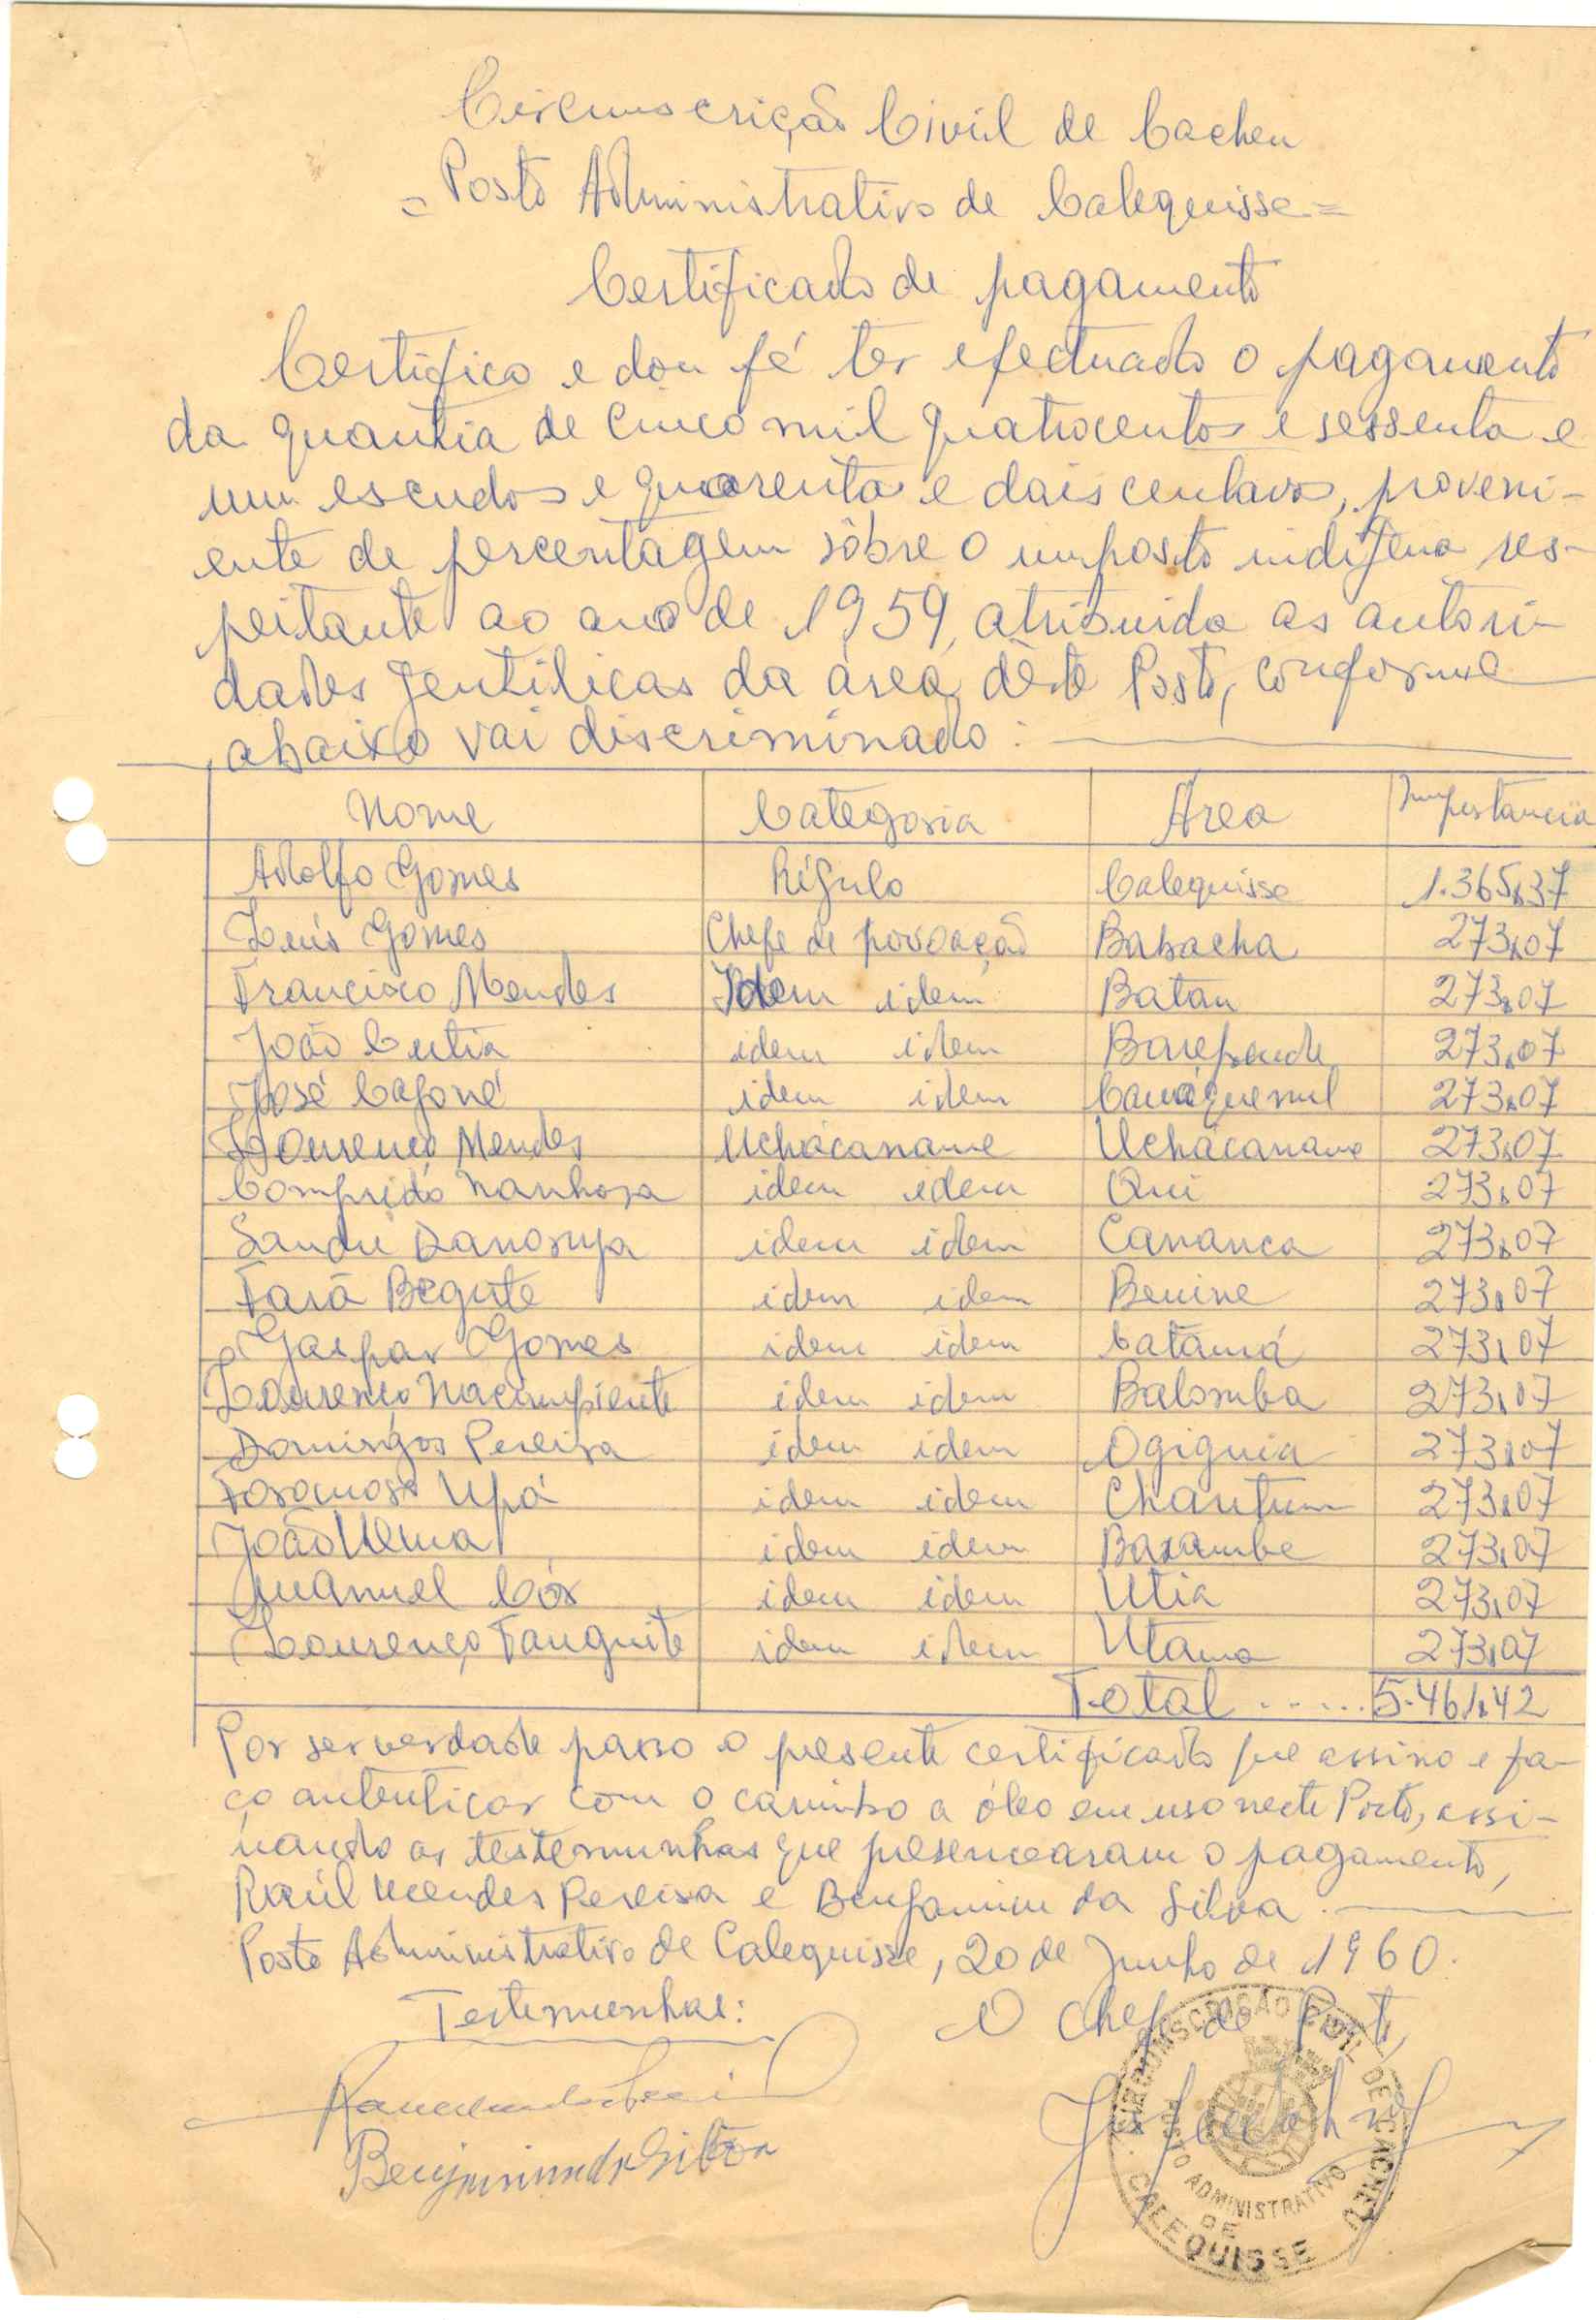 Circunscrição Civil de Cacheu
= Posto Administrativo de Calequisse =
Certificado de pagamento
Certifico e dou fé ter efectuado o pagamento
da quantia de cinco mil quatrocentos e sessenta e
um escudos e quarenta e dois centavos, proveni-
ente de percentagem sôbre o imposto indígena res-
peitante ao ano de 1959, atribuida as autori-
dades gentilicas da área dêste Posto, conforme
abaixo vai discriminado:
Nome Categoria Area Importancia
Adolfo Gomes Régulo Calequisse 1.365$37
Luís Gomes Chefe de povoação Babacha 273$07
Francisco Mendes Idem idem Batau 273$07
João Cutia idem idem 273$07
José Cafoné idem idem 273$07
Lourenço Mendes Uchácaname Uchácaname 273$07
Comprido Nanhora idem idem Qui 273$07
Sandu idem idem Cananca 273$07
Fará Begute idem idem Benine 273$07
Gaspar Gomes idem idem Catamá 273$07
Lourenço Nacumpiente idem idem Balomba 273$07
Domingos Pereira idem idem Ogiguia 273$07
Upá idem idem Chantum 273$07
João Uema idem idem Barambe 273$07
Manuel Cór idem idem Utia 273$07
Lourenço Fanguite idem idem Utama 273$07
Total ..... 5.461$42
Por ser verdade passo o presente certificado que assino e fa-
ço autenticar com o carimbo a óleo em uso neste Posto, assi-
nando as testemunhas que presencearam o pagamento,
Raúl Mendes Pereira e Benjamim da Silva.
Posto Administrativo de Calequisse, 20 de Junho de 1960.
Testemunhas:
O Chefe do Posto,
Benjamim da Silva
CIRCUNSCRIÇÃO CIVIL DE CACHEU
POSTO ADMINISTRATIVO
DE
CALEQUISSE